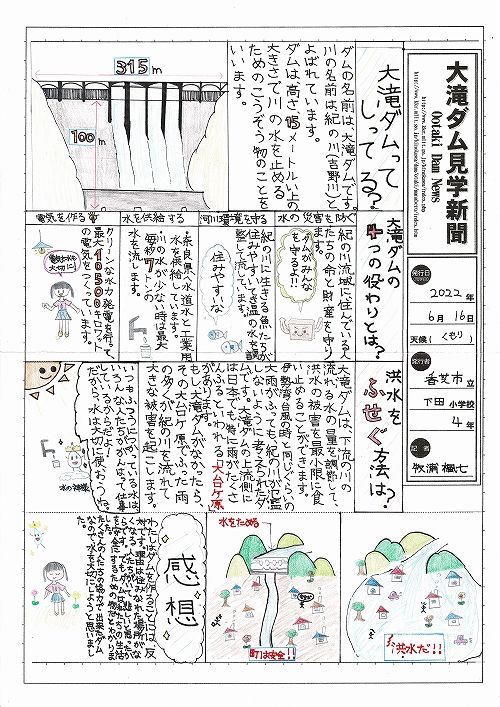 大滝ダム見学新聞
Ootaki Dam News
発行日
2022年
6月16日
天候(くもり)
発行者
香芝市立
下田小学校
4年
記者
大滝ダムって
しってる?
ダムの名前は、大滝ダムです。
川の名前は紀の川(吉野川)と
よばれています。
ダムは、高さ15メートル以上の
大きさで川の水を止める
ためのこうぞう物のことを
いいます。
315m
100m
大滝ダムの
4つの役わりとは?
水の災害を防ぐ
紀の川流域に住んでいる人
たちの命と財産を守り
ます。
ダムがみんな
を守るよ!!
河川環境を守る
紀の川に生きる魚たちが
住みやすいよう水温の調
整をして流しています。
住みやすいな
水を供給する
・奈良県の水道水と工業用
水を供給しています。
・川の水が少ない時は最大
毎秒7トンの
水を流します。
電気を作る
クリーンな水力発電を行って
最大10500キロワット
の電気をつくっています。
電気も水も
大切に!
洪水を
ふせぐ方法は?
大滝ダムは、下流の川の
流れる水の量を調節して、
洪水の被害を最小限に食
い止めることができます。
伊勢湾台風の時と同じくらいの
大雨がふっても、紀の川が氾濫
しないように考えられたダ
ムです。大滝ダムの上流側に
は日本でも特に雨がたくさ
んふるといわれる「大台ケ原」
があります。
もし大滝ダムがなかったら、
その大台ケ原でふった雨
の多くが紀の川を流れて
大きな被害を起こします。
いつもふつうにつかっている水は
いろんな人たちががんばって仕事
しているからだよ!
だから、水は大切に使おうね。
水の神様
洪水だ!!
水をためる
町は安全!!
感想
わたしはダムを作ることには、反
対です。理由は住みなれた場所がな
くなる人たちがいて悲しいと思ったか
らです。でもダムは私たちの生活
を安全にするための物だと分かりま
した。
たくさんの人たちの協力で出来たダム
なので、水を大切にしようと思いまし
た。